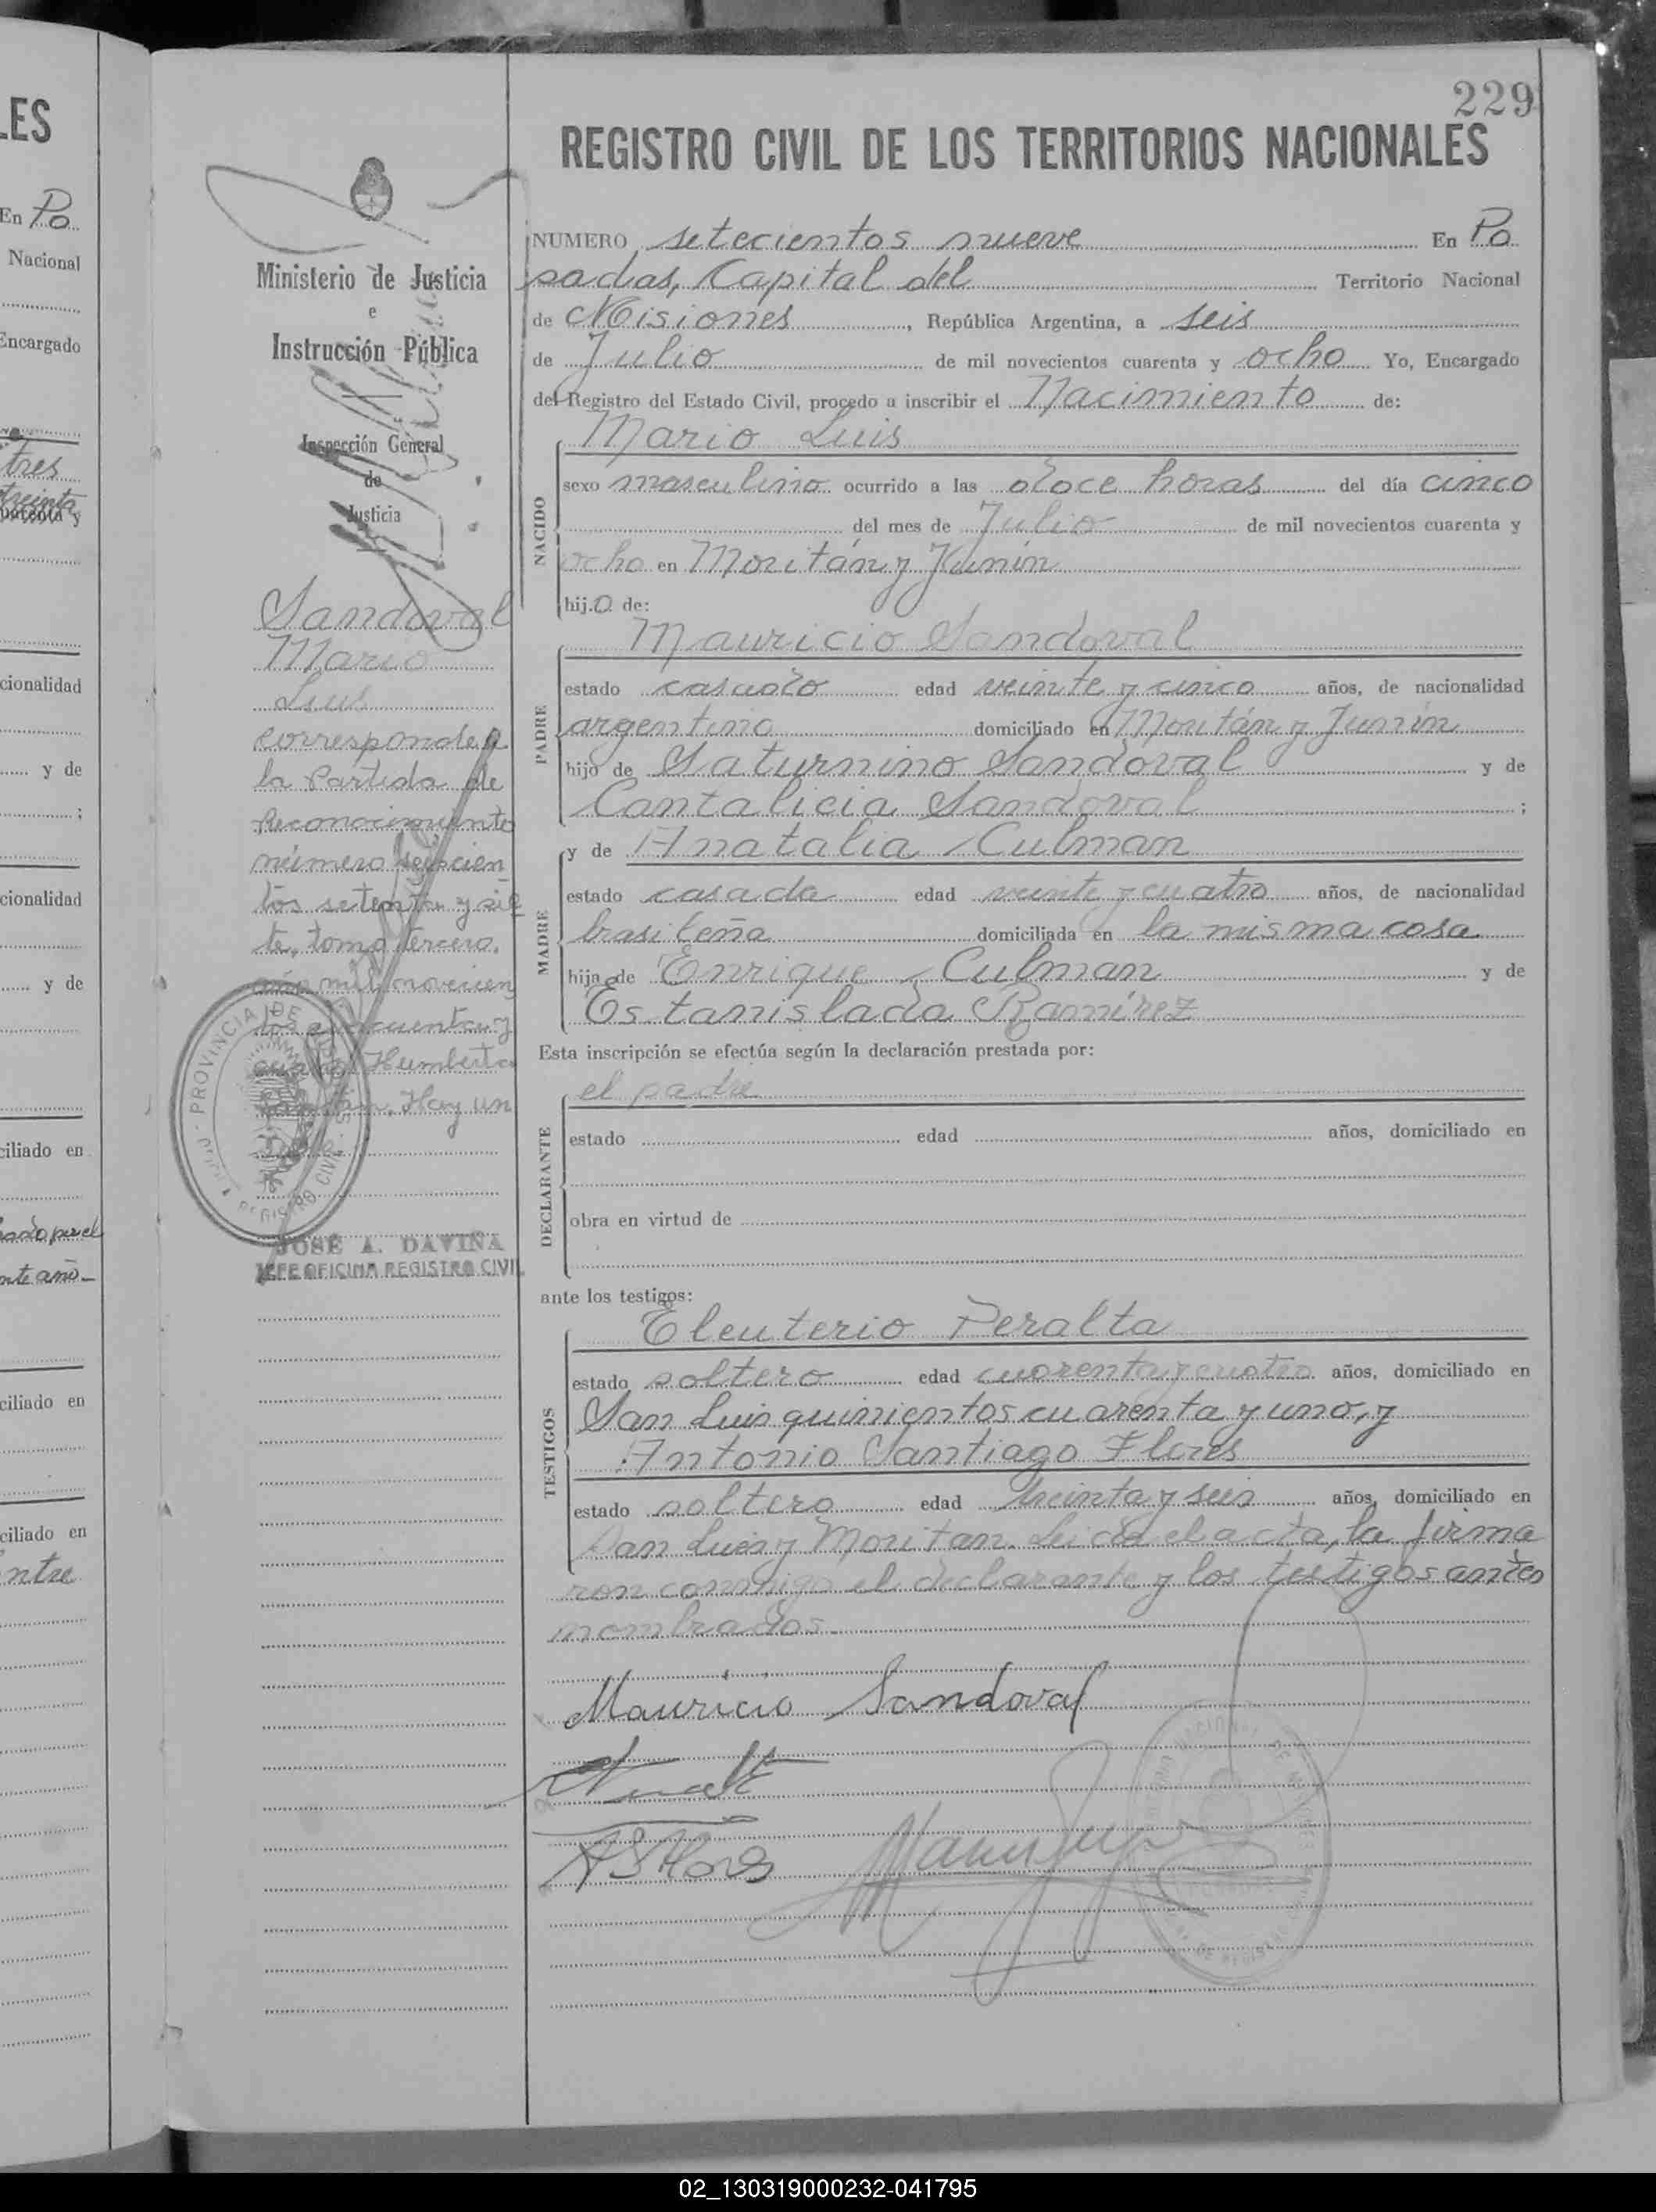 229
REGISTRO CIVIL DE LOS TERRITORIOS NACIONALES
NUMERO setecientos nueve En Po
sadas, Capital del Territorio Nacional
de Misiones, República Argentina, a seis
de Julio de mil novecientos cuarenta y ocho Yo, Encargado
del Registro del Estado Civil, procedo a inscribir el Nacimiento de:
NACIDO
Mario Luis
sexo masculino ocurrido a las doce horas del día cinco
del mes de Julio de mil novecientos cuarenta y
ocho en Moritán y Junín
hijo de:
PADRE
Mauricio Sandoval
estado casado edad veinte y cinco años, de nacionalidad
argentino domiciliado en Moritán y Junín
hijo de Saturnino Sandoval y de
Cantalicia Sandoval;
MADRE
y de Anatalia Culman
estado casada edad veinte y cuatro años, de nacionalidad
brasileña domiciliada en la misma casa
hija de Enrique Culman y de
Estanislada Ramírez
Esta inscripción se efectúa según la declaración prestada por:
DECLARANTE
el padre
estado edad años, domiciliado en
obra en virtud de
ante los testigos:
TESTIGOS
Eleuterio Peralta
estado soltero edad cuarenta y cuatro años, domiciliado en
San Luis quinientos cuarenta y uno, y
Antonio Santiago Flores
estado soltero edad treinta y seis años, domiciliado en
San Luis y Moritan. Leida el acta, la firma
ron conmigo el declarante y los testigos antes
nombrados.
Mauricio Sandoval
ASFlores
Ministerio de Justicia
e
Instrucción Pública
Inspección General
de
Justicia
Sandoval
Mario
Luis
corresponde a
la Partida de
Reconocimiento
número seiscien
tos setenta y sie
te, tomo tercero,
año mil novecien
tos cincuenta y
Humberto
Hay un
sello
PROVINCIA DE MISIONES
REGISTRO CIVIL
JOSE A. DAVIÑA
JEFE OFICINA REGISTRO CIVIL
LES
En Po
Nacional
Encargado
tres
treinta
cuarenta y
cionalidad
y de
;
cionalidad
y de
ciliado en
nte año-
ciliado en
ciliado en
ntre
02_130319000232-041795